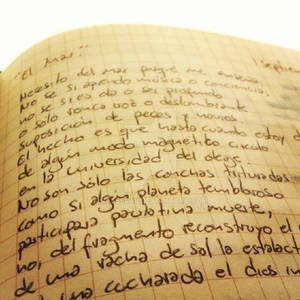 "El Mar."
1 Septiem
Necesito del mar porque me enseña:
No sé si aprendo música o conciencia,
no sé si es ola o ser profundo
o sólo ronca voz o deslumbrante
suposición de peces y navíos
El hecho es que hasta cuando estoy d
de algún modo magnético circulo
en la universidad del oleaje
No son sólo las conchas trituradas
como si algún planeta tembloroso
participara paulatina muerte,
no, del fragmento reconstruyo el
de una racha de sal la estalact
una cucharada el dios in